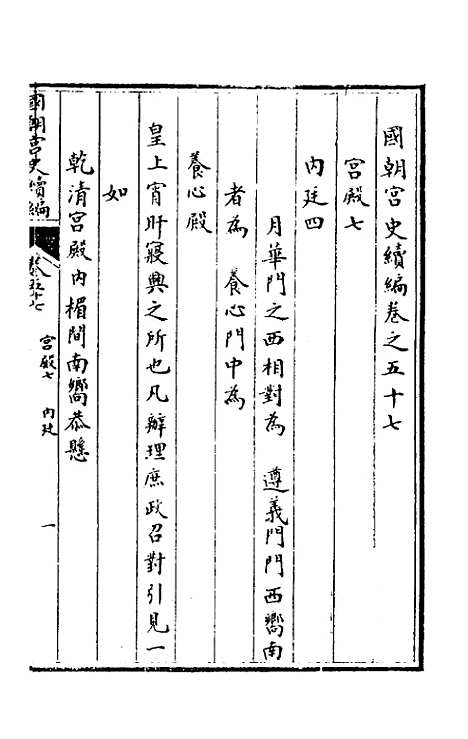 國朝宮史續編卷之五十七
宮殿七
內廷四
月華門之西相對爲 遵義門門西嚮南
者爲 養心門中爲
養心殿
皇上宵旰寢興之所也凡辦理庶政召對引見一
如
乾清宮殿內楣間南嚮恭懸
國朝宮史續編
卷五十七
宮殿七 內廷
一